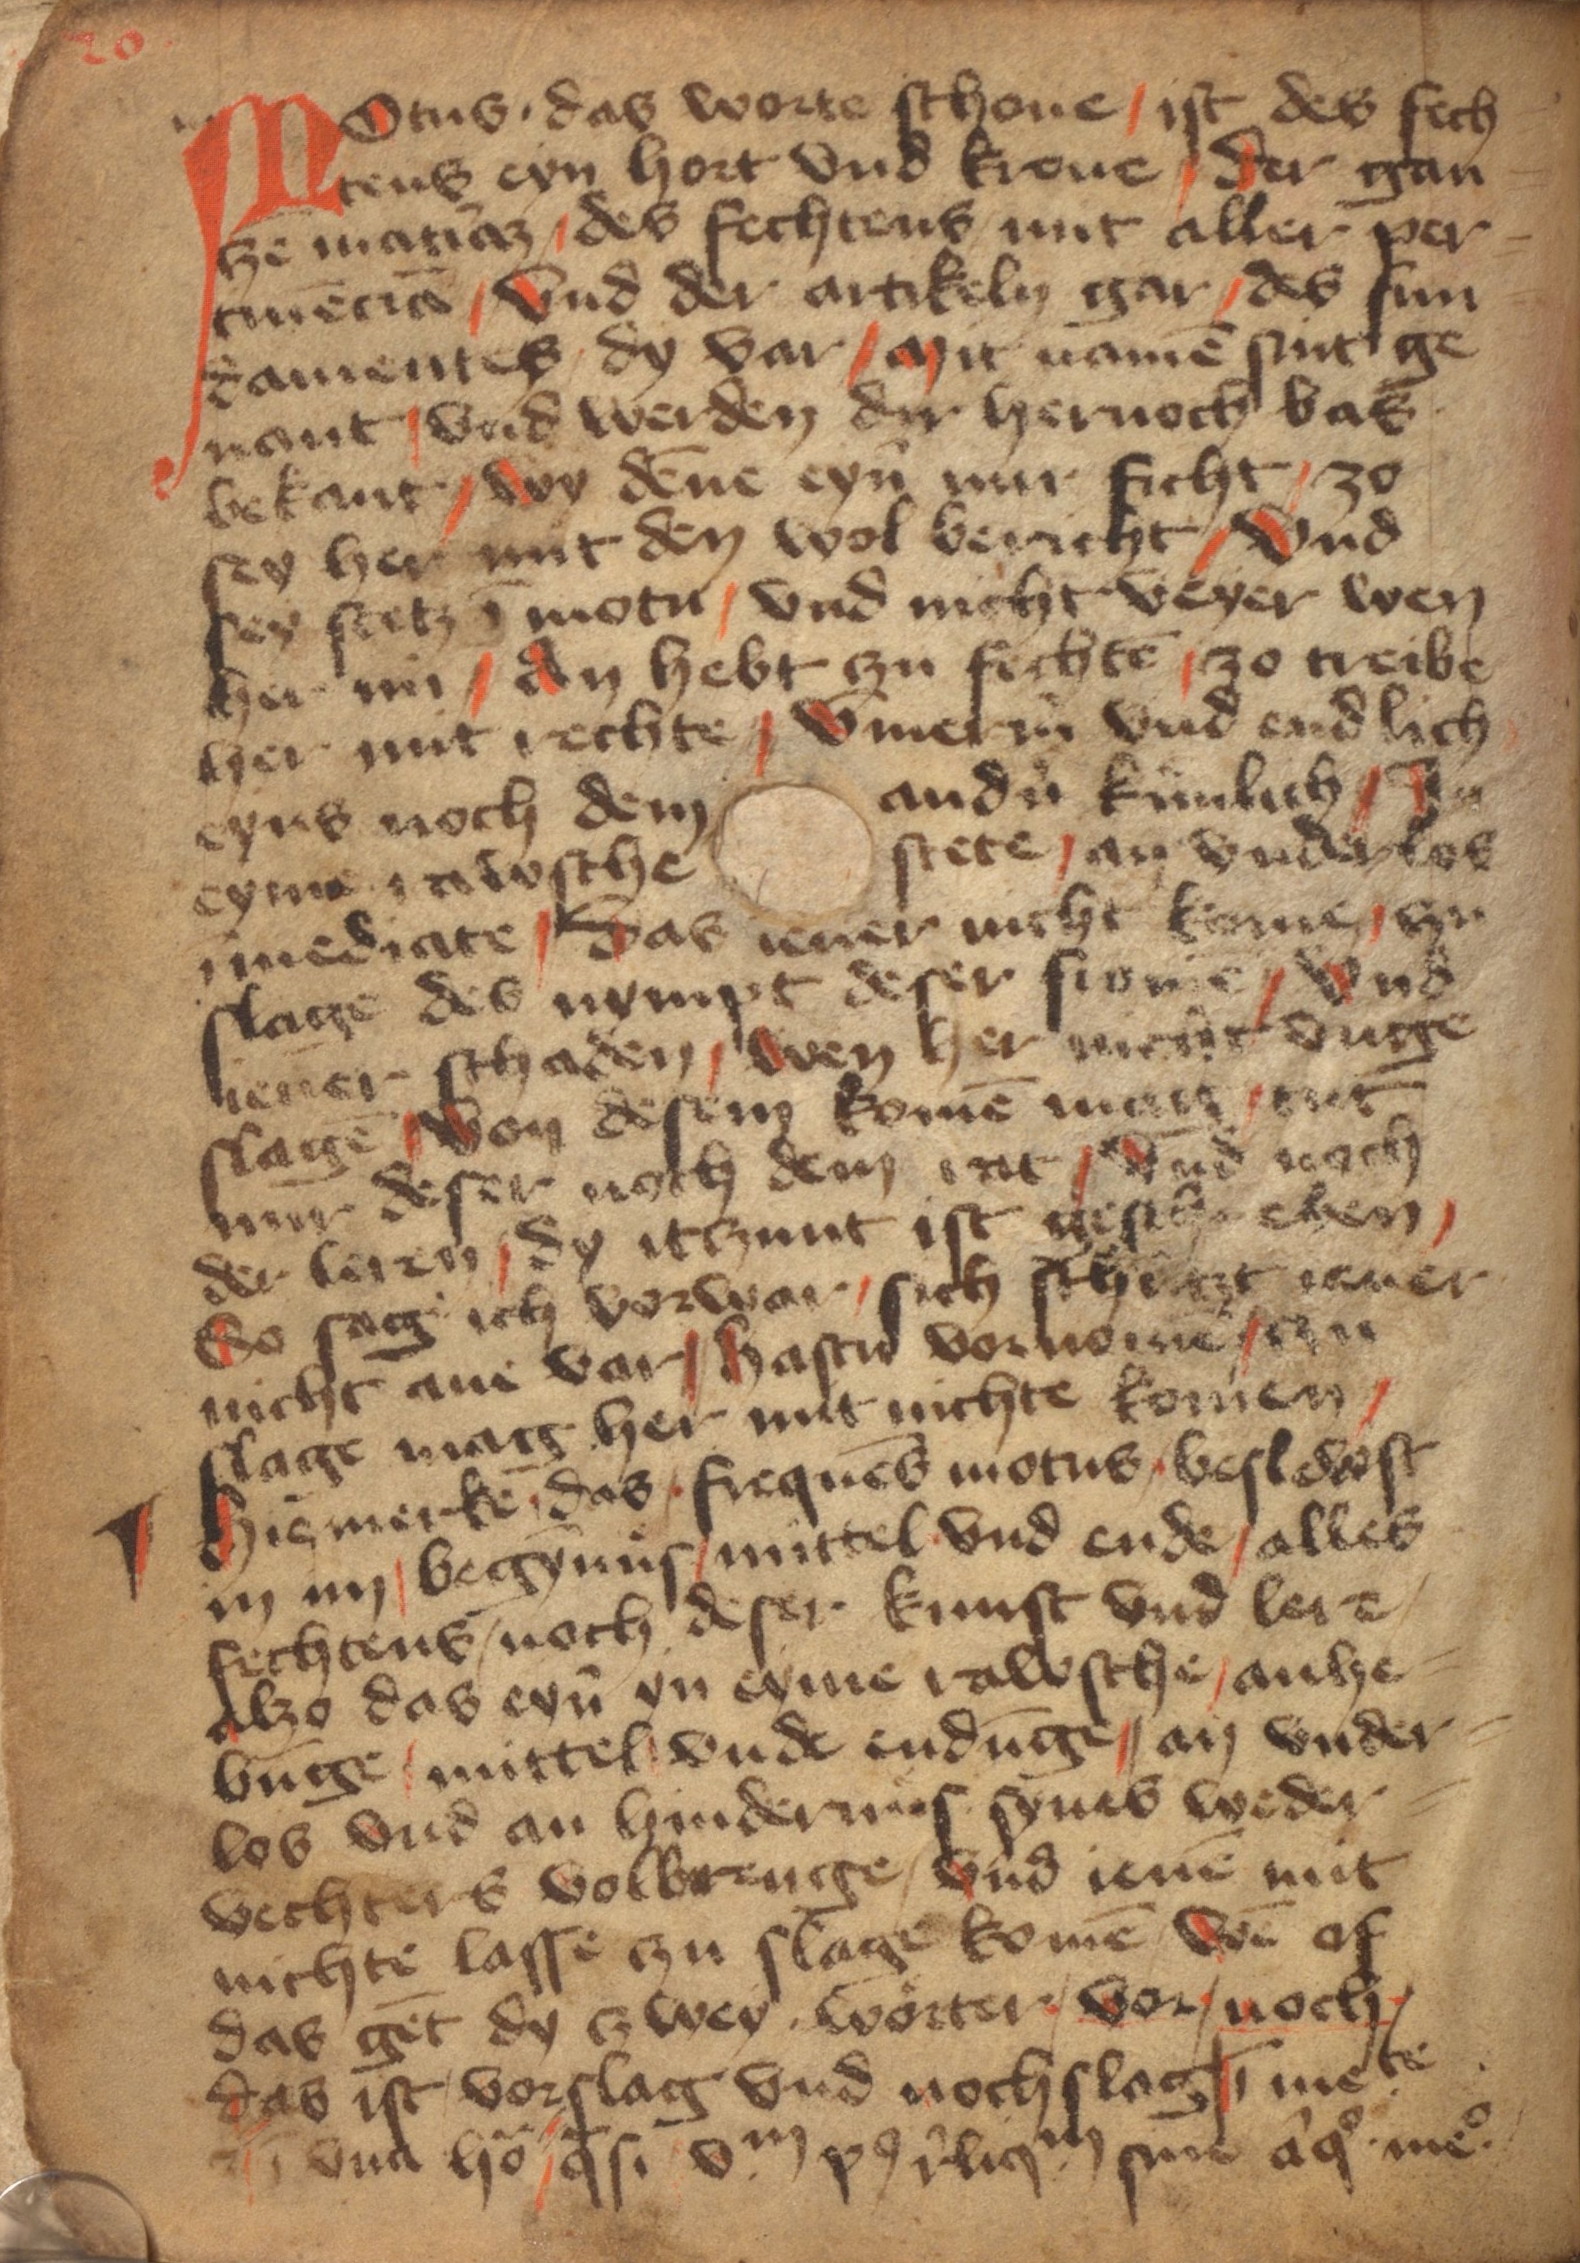 20
MOtus das worte schone / ist des fech
tens eyn hort vnd krone / der gan
tzē materiaz / des fechtens mit aller per
tinēciā / Vnd der artikeln gar / des fun
damentes dy var / Mit namē sint ge
nant / vnd werden dir hernoch bas
bekant / wy dēne eyn̄ nur ficht / zo
sey her mit den wol bericht / Vnd
sey stetz ī motu / vnd nicht veyer wen
her nu / An hebt czu fechtē / zo treibe
her mit rechte / vmermē vnd endlich
eyns noch dem andn̄ künlich / In
eyme rawsche stete / an vnderlos
imediate / Das iener nicht kome / czu
slage des nympt deser fromē / Vnd
iener schaden / wen her nicht vnge
slagē / Von desem komē mag / tut
nur deser noch dem rat / Vnd noch
der leren / dy itzunt ist geschreben /
So sag ich vorwar / sich schützt iener
nicht ane var / hastu vornomē / czu
slage mag her mit nichte komen /
Hie merke das frequēs motus beslewst
in im / begȳnnüs / mittel vnd ende / alles
fechtens noch deser kunst vnd lere /
alzo das eyn̄ yn eyme rawsche / anhe
būnge / mittel vnde endūnge / an vnder
los vnd an hindernüs synes weder
vechters volbrenge / vnd ienē mit
nichte lasse czu slage komē / wē of
das gēt dy czwey wörter / vor / noch /
das ist vorslag vnd nochslag / ī mete
vna hō / q̄si vm pꝰ rliqm sine aͥqͦ meͦ